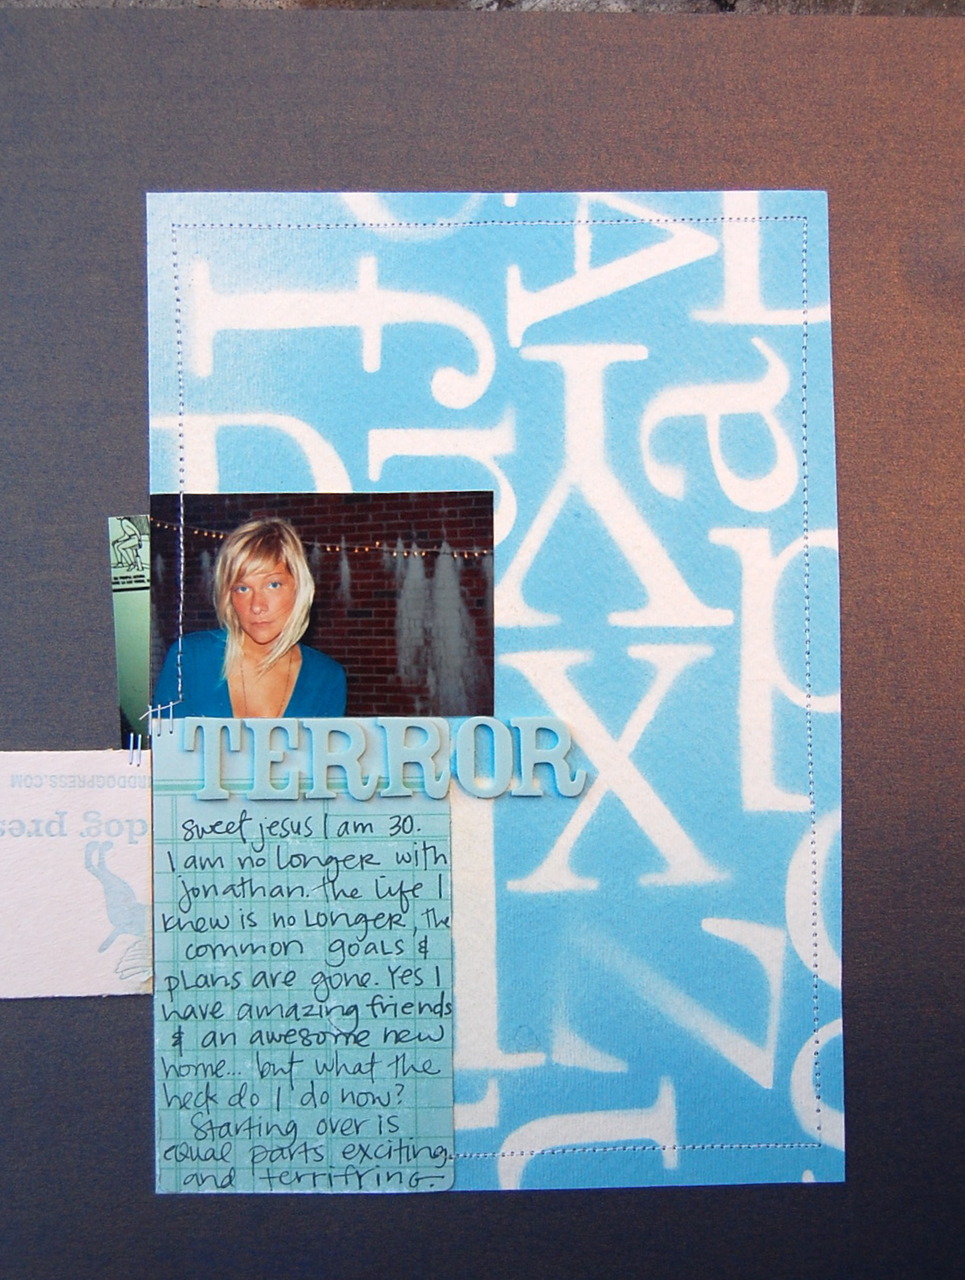 TERROR
sweet jesus I am 30.
I am no longer with
jonathan. the life I
knew is no longer, the
common goals &
plans are gone. Yes I
have amazing friends
& an awesome new
home... but what the
heck do I do now?
Starting over is
equal parts exciting
and terrifring.
RDDOGPRESS.COM
dog pres
f
A
a
Y
X
p
Z